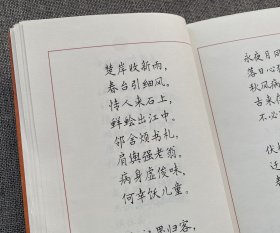 楚岸收新雨，
春台引细风。
情人来石上，
鲜鲙出江中。
邻舍烦书札，
肩舆强老翁。
病身虚俊味，
何幸饫儿童。
归客，
永夜月
落日心
秋风病
古来
不必